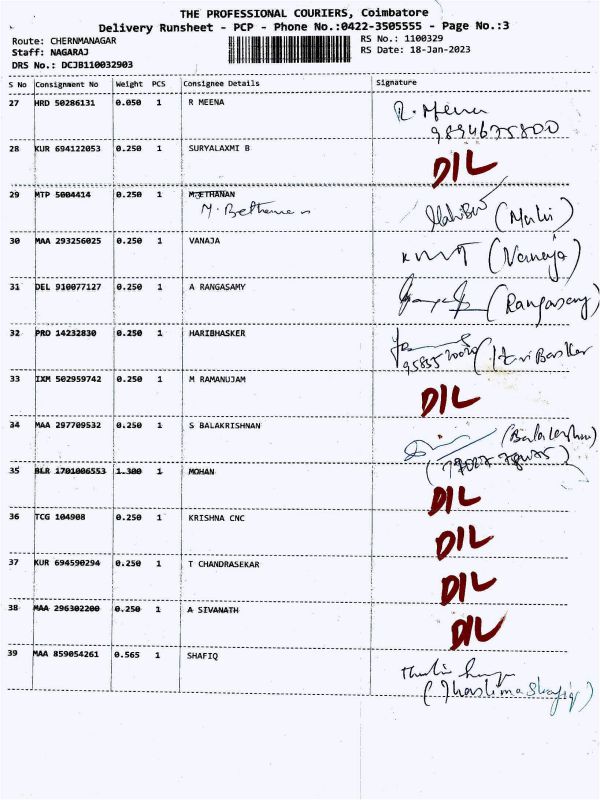 THE PROFESSIONAL COURIERS, Coimbatore
Delivery Runsheet - PCP - Phone No.:0422-3505555 - Page No.:3
Route: CHERNMANAGAR RS No.: 1100329
Staff: NAGARAJ RS Date: 18-Jan-2023
DRS No.: DCJB110032903
S No Consignment No Weight PCS Consignee Details Signature
27 HRD 50286131 0.050 1 R MEENA R. Meena
9894675800
28 KUR 694122053 0.250 1 SURYALAXMI B D/L
29 MTP 5004414 0.250 1 M.ETHANAN
M. Bethanan (Malni)
30 MAA 293256025 0.250 1 VANAJA (Vanaja)
31 DEL 910077127 0.250 1 A RANGASAMY (Rangasamy)
32 PRO 14232830 0.250 1 HARIBHASKER
Hari Basker
33 IXM 502959742 0.250 1 M RAMANUJAM D/L
34 MAA 297709532 0.250 1 S BALAKRISHNAN
35 BLR 1701006553 1.300 1 MOHAN D/L
36 TCG 104908 0.250 1 KRISHNA CNC D/L
37 KUR 694590294 0.250 1 T CHANDRASEKAR D/L
38 MAA 296302200 0.250 1 A SIVANATH D/L
39 MAA 859054261 0.565 1 SHAFIQ